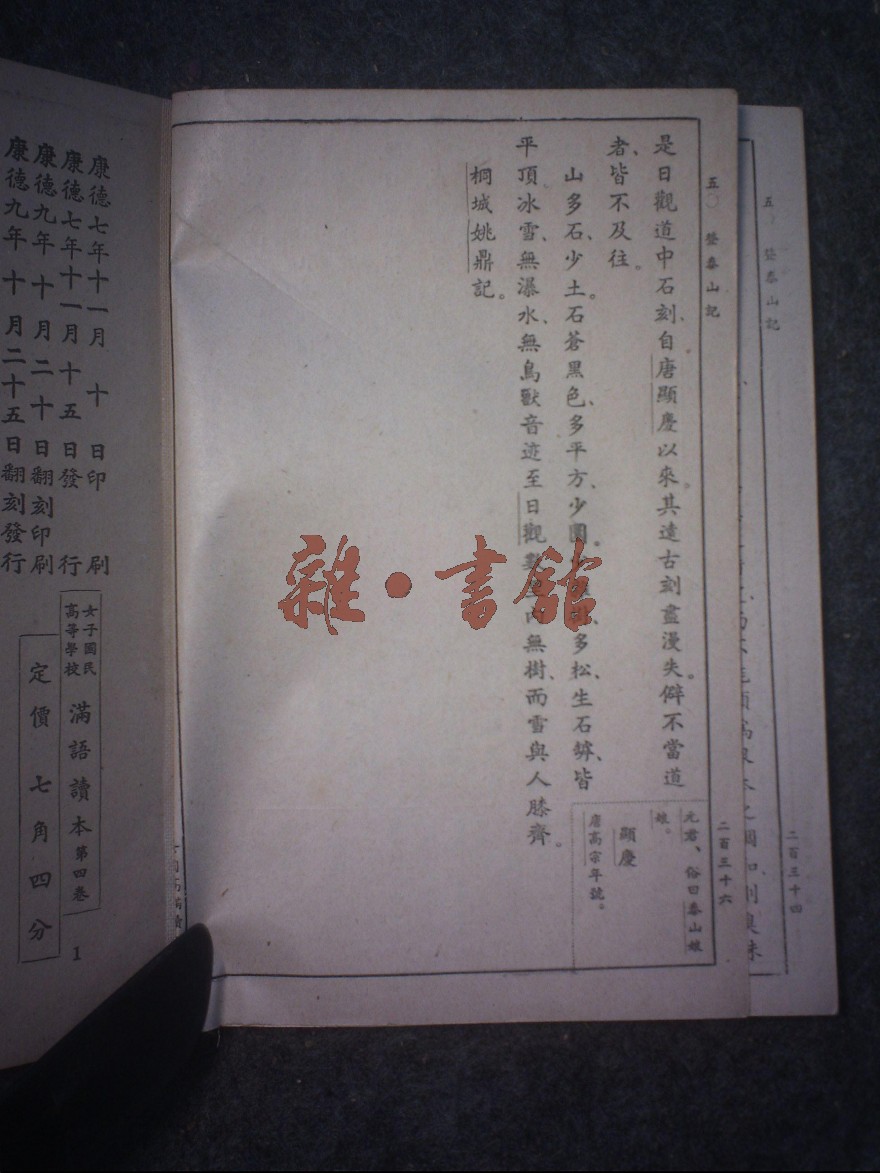 五〇 登泰山記
二百三十四
五〇 登泰山記
二百三十六
是日觀道中石刻、自唐顯慶以來。其遠古刻盡漫失。僻不當道
者、皆不及往。
山多石、少土。石蒼黑色、多平方、少圓。少雜樹、多松、生石罅、皆
平頂冰雪、無瀑水、無鳥獸音迹至日觀數里內無樹、而雪與人膝齊。
桐城姚鼎記。
元君、俗曰泰山娘
娘。
顯慶
唐高宗年號。
雜·書館
康德七年十一月 十 日印 刷
康德七年十一月 十五 日發 行
康德九年 十 月二十 日翻刻印刷
康德九年 十 月二十五日翻刻發行
女子國民
高等學校
滿語讀本 第四卷
1
定價 七角四分